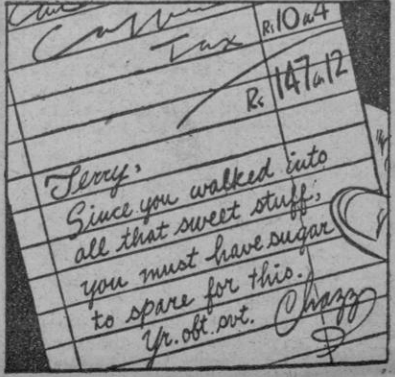 Tax
Rs 10 a 4
Rs 147 a 12
Terry,
Since you walked into
all that sweet stuff,
you must have sugar
to spare for this.
Yr. obt. svt. Chazz